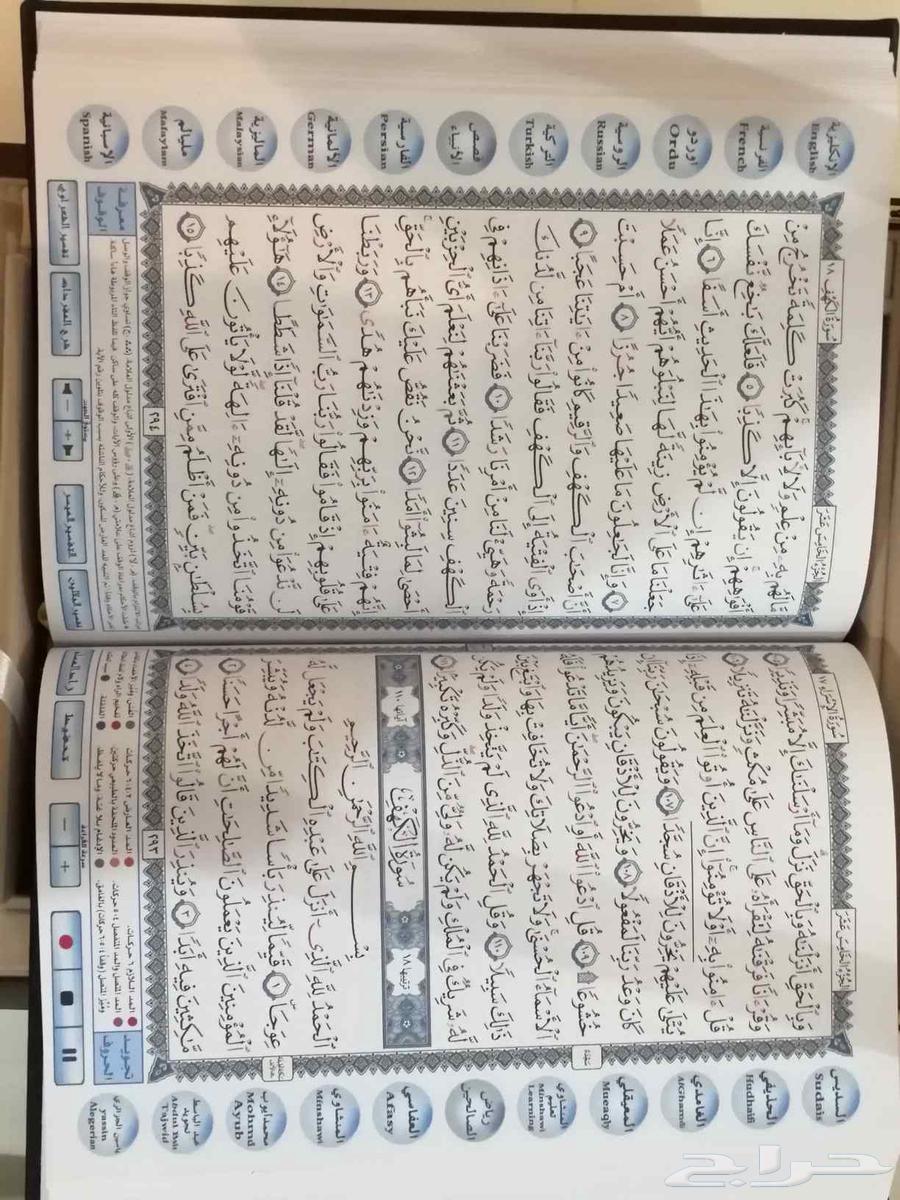 السديس
Sudais
الحذيفي
Hudhaifi
الغامدي
AlGhamdi
المعيقلي
Mueaqly
المنشاوي تعليم
Minshawi Learning
رياض الصالحين
العفاسي
Afasy
المنشاوي
Minshawi
محمد أيوب
Mohmd Ayub
عبد الباسط تجويد
Abdul Basit Tajwid
ياسين الجزائري
yassin Alegerian
الجُزْءُ الخَامِسَ عَشَرَ
سُورَةُ الإِسْرَاءِ ١٧
وَبِٱلْحَقِّ أَنزَلْنَٰهُ وَبِٱلْحَقِّ نَزَلَ وَمَآ أَرْسَلْنَٰكَ إِلَّا مُبَشِّرًا وَنَذِيرًا ١٠٥
وَقُرْءَانًا فَرَقْنَٰهُ لِتَقْرَأَهُۥ عَلَى ٱلنَّاسِ عَلَىٰ مُكْثٍ وَنَزَّلْنَٰهُ تَنزِيلًا ١٠٦
قُلْ ءَامِنُوا۟ بِهِۦٓ أَوْ لَا تُؤْمِنُوٓا۟ إِنَّ ٱلَّذِينَ أُوتُوا۟ ٱلْعِلْمَ مِن قَبْلِهِۦٓ إِذَا
يُتْلَىٰ عَلَيْهِمْ يَخِرُّونَ لِلْأَذْقَانِ سُجَّدًا ١٠٧ وَيَقُولُونَ سُبْحَٰنَ رَبِّنَآ إِن
كَانَ وَعْدُ رَبِّنَا لَمَفْعُولًا ١٠٨ وَيَخِرُّونَ لِلْأَذْقَانِ يَبْكُونَ وَيَزِيدُهُمْ
خُشُوعًا ۩ ١٠٩ قُلِ ٱدْعُوا۟ ٱللَّهَ أَوِ ٱدْعُوا۟ ٱلرَّحْمَٰنَ أَيًّا مَّا تَدْعُوا۟ فَلَهُ
ٱلْأَسْمَآءُ ٱلْحُسْنَىٰ وَلَا تَجْهَرْ بِصَلَاتِكَ وَلَا تُخَافِتْ بِهَا وَٱبْتَغِ بَيْنَ
ذَٰلِكَ سَبِيلًا ١١٠ وَقُلِ ٱلْحَمْدُ لِلَّهِ ٱلَّذِى لَمْ يَتَّخِذْ وَلَدًا وَلَمْ يَكُن
لَّهُۥ شَرِيكٌ فِى ٱلْمُلْكِ وَلَمْ يَكُن لَّهُۥ وَلِىٌّ مِّنَ ٱلذُّلِّ وَكَبِّرْهُ تَكْبِيرًۢا ١١١
ترتيبها ١٨ سُورَةُ الكَهْفِ آياتها ١١٠
بِسْمِ ٱللَّهِ ٱلرَّحْمَٰنِ ٱلرَّحِيمِ
ٱلْحَمْدُ لِلَّهِ ٱلَّذِىٓ أَنزَلَ عَلَىٰ عَبْدِهِ ٱلْكِتَٰبَ وَلَمْ يَجْعَل لَّهُۥ
عِوَجَا ۜ ١ قَيِّمًا لِّيُنذِرَ بَأْسًا شَدِيدًا مِّن لَّدُنْهُ وَيُبَشِّرَ
ٱلْمُؤْمِنِينَ ٱلَّذِينَ يَعْمَلُونَ ٱلصَّٰلِحَٰتِ أَنَّ لَهُمْ أَجْرًا حَسَنًا ٢
مَّٰكِثِينَ فِيهِ أَبَدًا ٣ وَيُنذِرَ ٱلَّذِينَ قَالُوا۟ ٱتَّخَذَ ٱللَّهُ وَلَدًا ٤
٢٩٣
سجدة
تجويد الحروف
سرعة القراءة
+
−
تحفيظ
الإنكليزية
English
الفرنسية
French
أوردو
Ordu
الروسية
Russian
التركية
Turkish
قصص الأنبياء
الفارسية
Persian
الألمانية
German
الماليزية
Malaysian
مليالم
Mafaylam
الإسبانية
Spanish
الجُزْءُ الخَامِسَ عَشَرَ
سُورَةُ الكَهْفِ ١٨
مَّا لَهُم بِهِۦ مِنْ عِلْمٍ وَلَا لِـَٔابَآئِهِمْ كَبُرَتْ كَلِمَةً تَخْرُجُ مِنْ
أَفْوَٰهِهِمْ إِن يَقُولُونَ إِلَّا كَذِبًا ٥ فَلَعَلَّكَ بَٰخِعٌ نَّفْسَكَ
عَلَىٰٓ ءَاثَٰرِهِمْ إِن لَّمْ يُؤْمِنُوا۟ بِهَٰذَا ٱلْحَدِيثِ أَسَفًا ٦ إِنَّا
جَعَلْنَا مَا عَلَى ٱلْأَرْضِ زِينَةً لَّهَا لِنَبْلُوَهُمْ أَيُّهُمْ أَحْسَنُ عَمَلًا
٧ وَإِنَّا لَجَٰعِلُونَ مَا عَلَيْهَا صَعِيدًا جُرُزًا ٨ أَمْ حَسِبْتَ
أَنَّ أَصْحَٰبَ ٱلْكَهْفِ وَٱلرَّقِيمِ كَانُوا۟ مِنْ ءَايَٰتِنَا عَجَبًا ٩
إِذْ أَوَى ٱلْفِتْيَةُ إِلَى ٱلْكَهْفِ فَقَالُوا۟ رَبَّنَآ ءَاتِنَا مِن لَّدُنكَ
رَحْمَةً وَهَيِّئْ لَنَا مِنْ أَمْرِنَا رَشَدًا ١٠ فَضَرَبْنَا عَلَىٰٓ ءَاذَانِهِمْ فِى
ٱلْكَهْفِ سِنِينَ عَدَدًا ١١ ثُمَّ بَعَثْنَٰهُمْ لِنَعْلَمَ أَىُّ ٱلْحِزْبَيْنِ
أَحْصَىٰ لِمَا لَبِثُوٓا۟ أَمَدًا ١٢ نَّحْنُ نَقُصُّ عَلَيْكَ نَبَأَهُم بِٱلْحَقِّ
إِنَّهُمْ فِتْيَةٌ ءَامَنُوا۟ بِرَبِّهِمْ وَزِدْنَٰهُمْ هُدًى ١٣ وَرَبَطْنَا
عَلَىٰ قُلُوبِهِمْ إِذْ قَامُوا۟ فَقَالُوا۟ رَبُّنَا رَبُّ ٱلسَّمَٰوَٰتِ وَٱلْأَرْضِ
لَن نَّدْعُوَا۟ مِن دُونِهِۦٓ إِلَٰهًا لَّقَدْ قُلْنَآ إِذًا شَطَطًا ١٤ هَٰٓؤُلَآءِ
قَوْمُنَا ٱتَّخَذُوا۟ مِن دُونِهِۦٓ ءَالِهَةً لَّوْلَا يَأْتُونَ عَلَيْهِم
بِسُلْطَٰنٍۭ بَيِّنٍ فَمَنْ أَظْلَمُ مِمَّنِ ٱفْتَرَىٰ عَلَى ٱللَّهِ كَذِبًا ١٥
٢٩٤
معرفة الوقوف
التفسير الميسر
− +
حراج